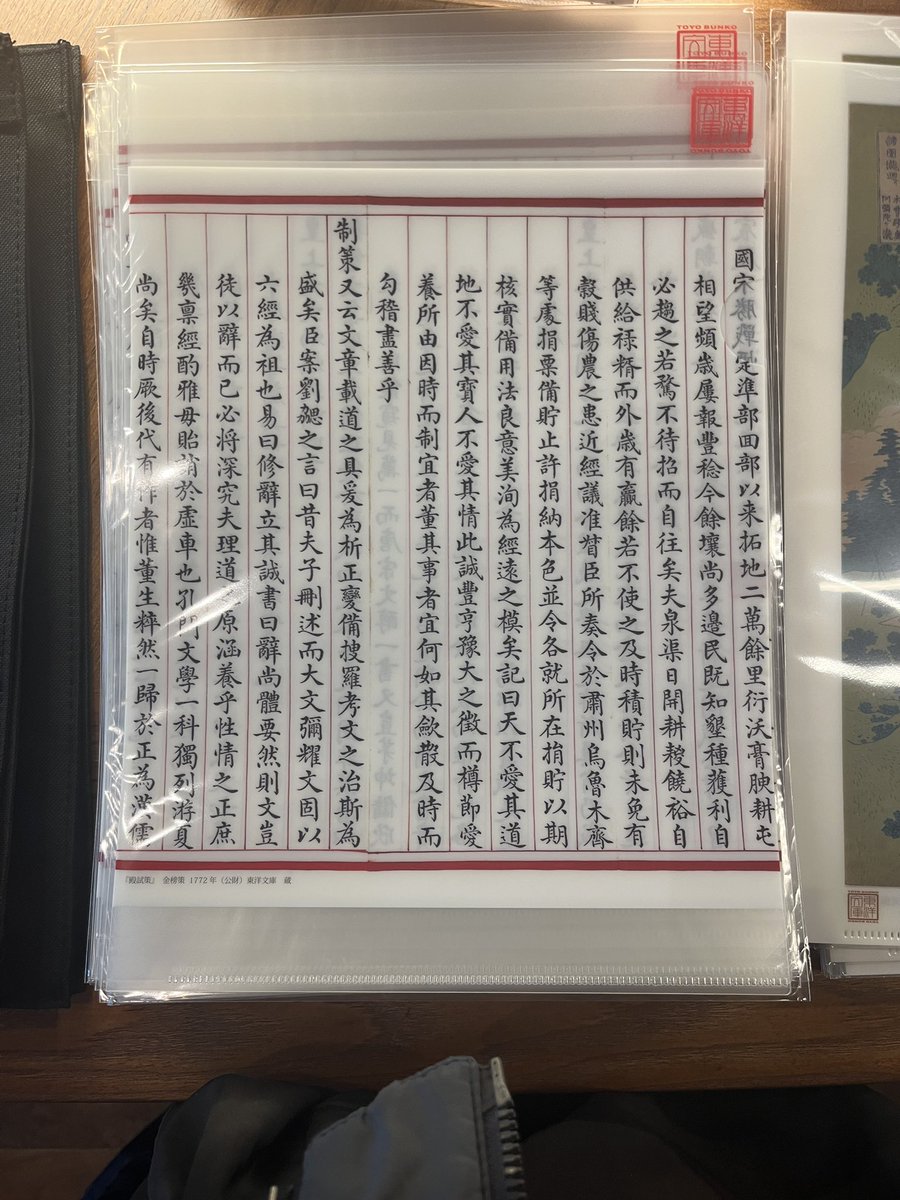 TOYO BUNKO
東洋文庫
TOYO BUNKO
國家戡定準部回部以来拓地二萬餘里衍沃膏腴耕屯
相望頻歲屢報豐稔今餘壤尚多邊民既知墾種獲利自
必趨之若騖不待招而自往矣夫泉渠日開耕耨饒裕自
供給禄糈而外歲有贏餘若不使之及時積貯則未免有
穀賤傷農之患近經議准督臣所奏令於肅州烏魯木齊
等處捐粟備貯止許捐納本色並令各就所在捐貯以期
核實備用法良意美洵為經遠之模矣記曰天不愛其道
地不愛其寶人不愛其情此誠豐亨豫大之徵而樽節愛
養所由因時而制宜者董其事者宜何如其歛散及時而
勾稽盡善乎
制策又云文章載道之具爰為析正變備搜羅考文之治斯為
盛矣臣案劉勰之言曰昔夫子刪述而大文彌耀文固以
六經為祖也易曰修辭立其誠書曰辭尚體要然則文豈
徒以辭而已必将深究夫理道之原涵養乎性情之正庶
幾禀經酌雅毋貽誚於虛車也孔門文學一科獨列游夏
尚矣自時厥後代有作者惟董生粹然一歸於正為漢儒
『殿試策』 金榜策 1772年（公財）東洋文庫 蔵